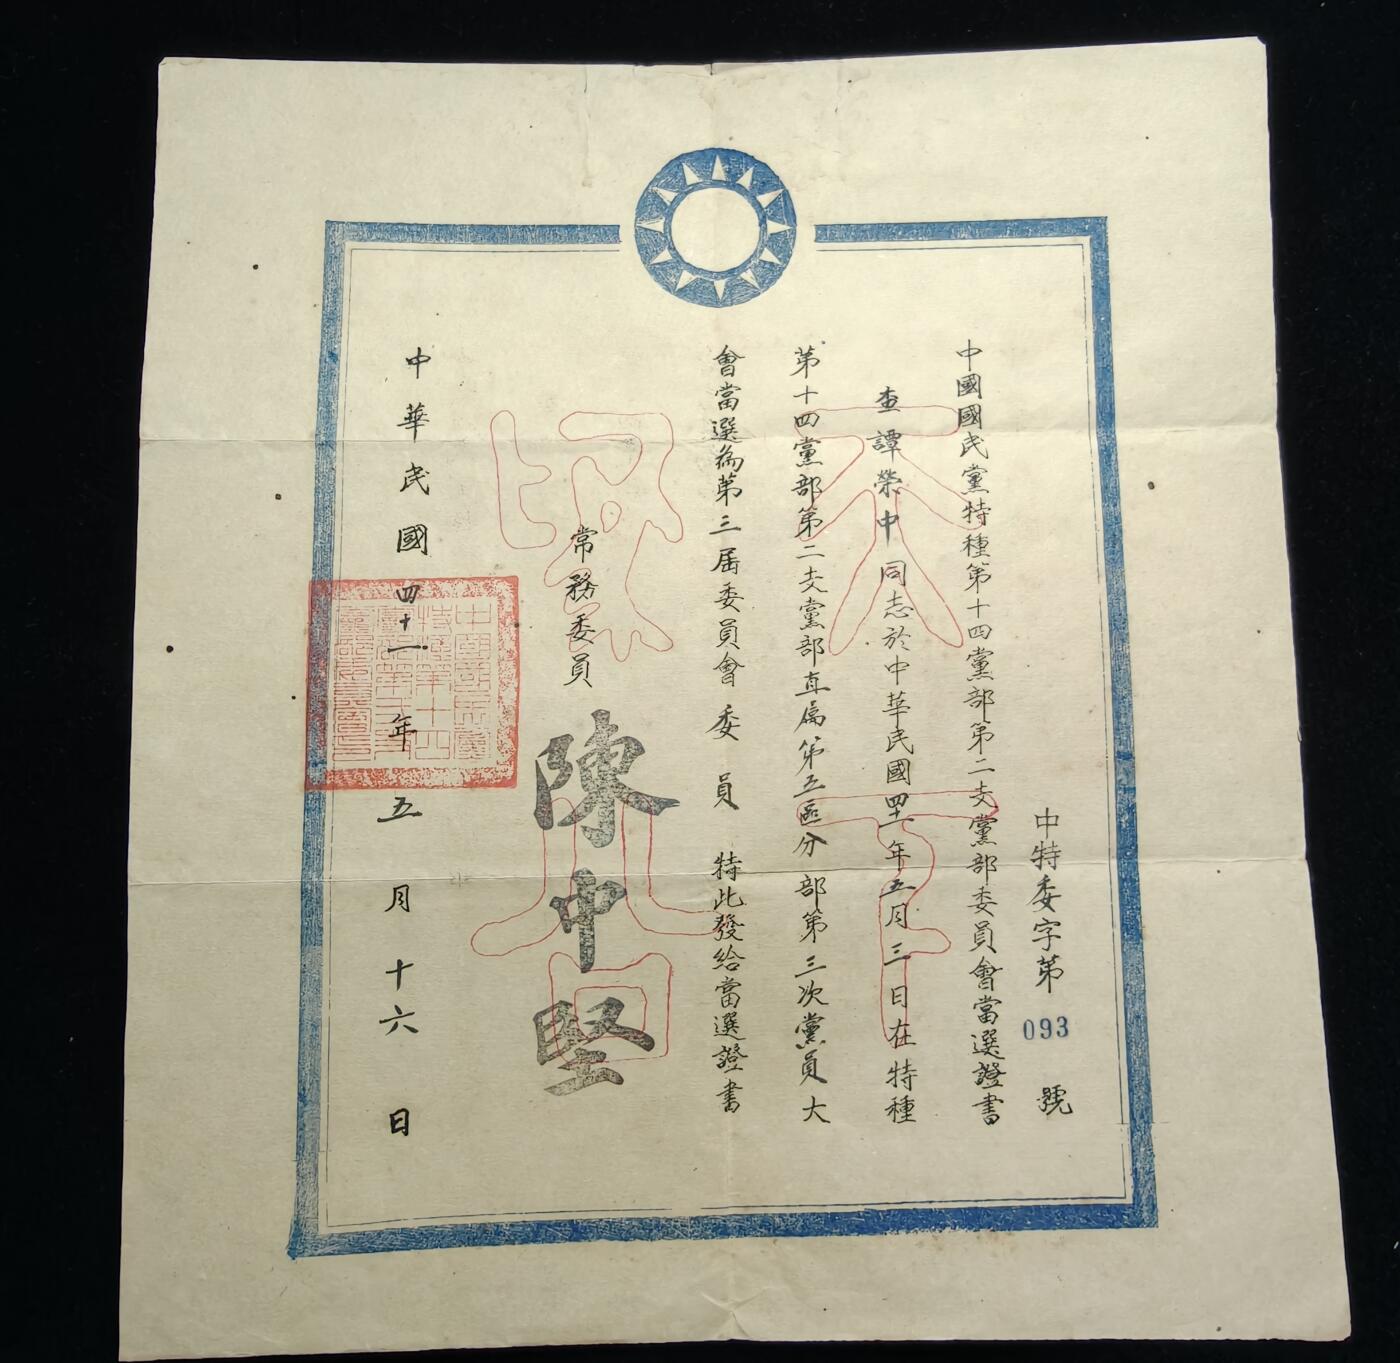 中特委字第093號
中國國民黨特種第十四黨部第二支黨部委員會當選證書
查譚榮中同志於中華民國四十一年五月三日在特種
第十四黨部第二支黨部直屬第五區分部第三次黨員大
會當選為第三屆委員會委員特此發給當選證書
常務委員 陳中堅
中華民國四十一年五月十六日
天下為公